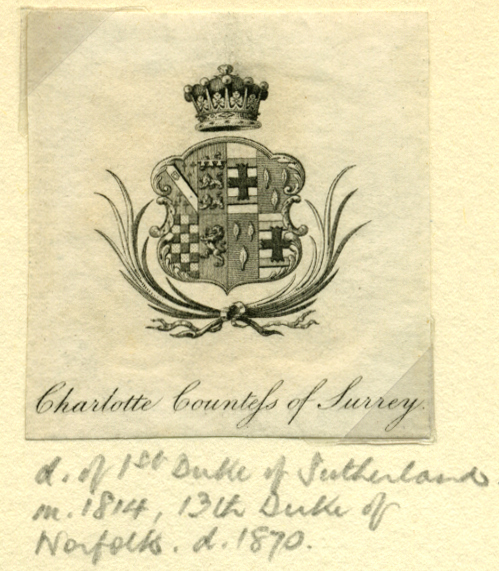 Charlotte Countefs of Surrey.
d. of 1st Duke of Sutherland.
m. 1814, 13th Duke of
Norfolk. d. 1870.